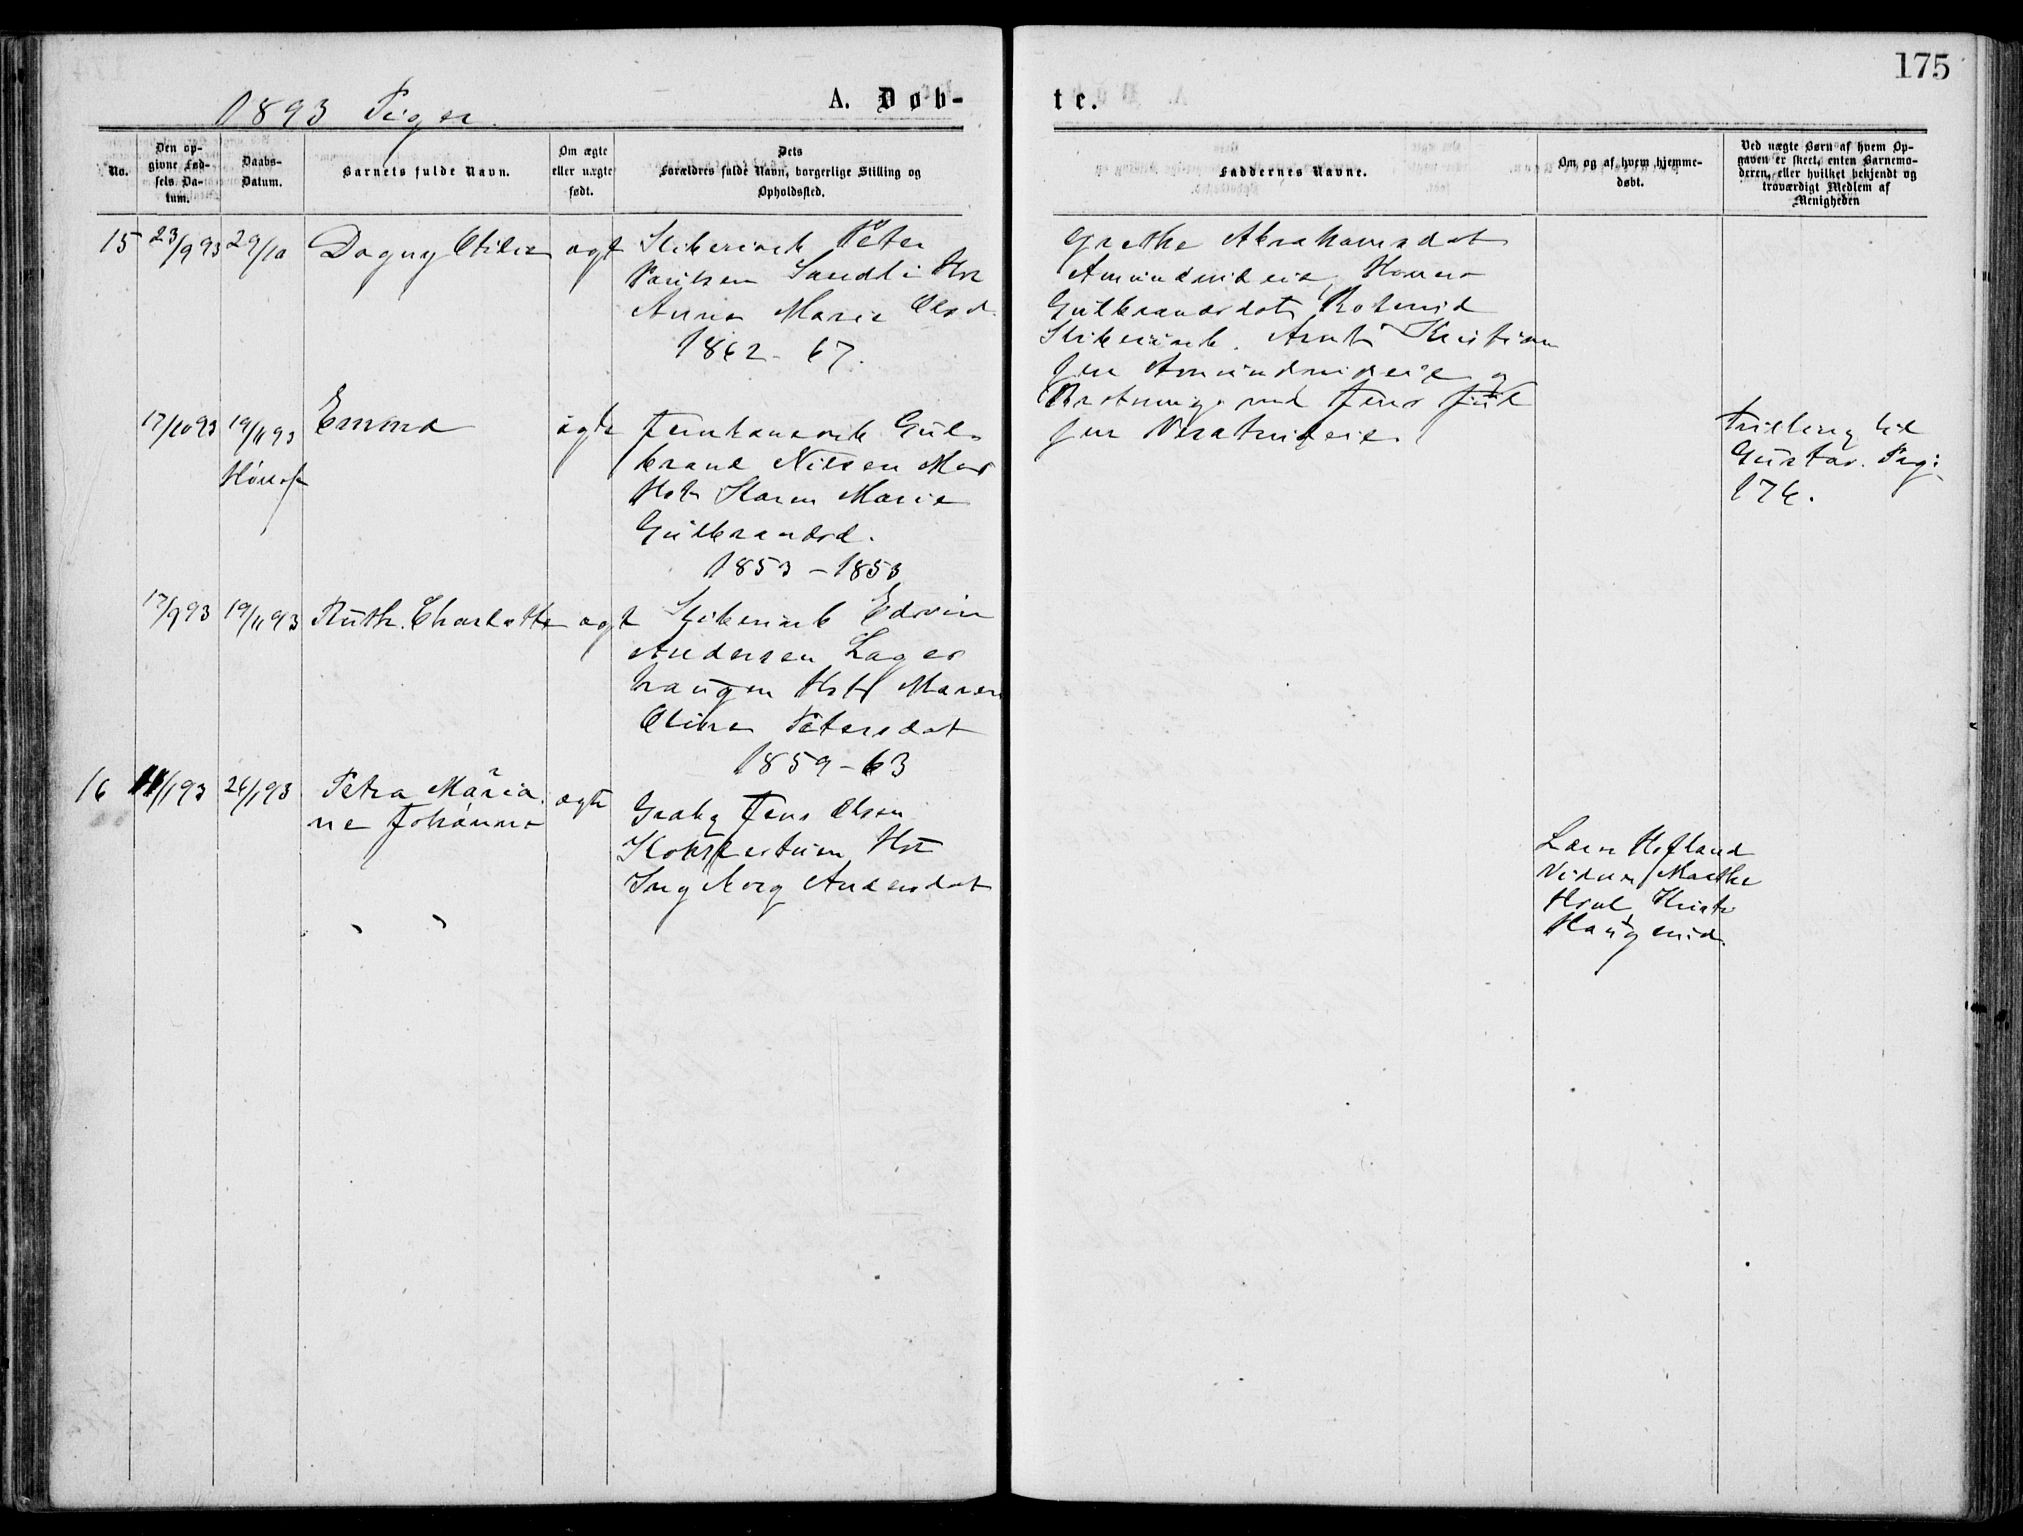 175
1893 Piger.
A. Døb-
te.
No.
Den op-
givne Fød-
sels Da-
tum.
Daabs-
Datum.
Barnets fulde Navn.
Om ægte
eller uægte
født.
Dets
Forældres fulde Navn, borgerlige Stilling og
Opholdssted.
Faddernes Navne.
Om og af hvem hjemme-
døbt.
Ved uægte Børn af hvem Op-
gaven er skeet, enten Barnemo-
deren, eller hvilket bekjendt og
troværdigt Medlem af
Menigheden
15 23/9 93 29/10 Dagny Otilie ægt Sliberiarb Peter
Paulsen Sandli Hst
Anne Marie Olsd.
1862 - 67.
Grethe Abrahamsdat
Amundrudeie, Hanna
Gulbrandsdat,
Sliberiarb. Arnt Kristian
Jen Amundrudeie og
Jens
Jen
17/10 93 19/11 93 Emma ægte Jernbanearb Gul-
Hønefos
brand Nilsen
Hst Karen Marie
Gulbrandsd.
1853 - 1853
Tvilling til
Gustav. Pag:
176.
17/9 93 19/11 93 Ruth. Charlotte ægt Sliberiarb Edvin
Andersen Lager
haugen Hst Maren
Oline Petersdat
1859 - 63
16 11/1 93 26/1 93 Petra Maria ægte
ne Johanne
Jens Olsen
Hst
Ingeborg Andersdat
Hofland
Marthe